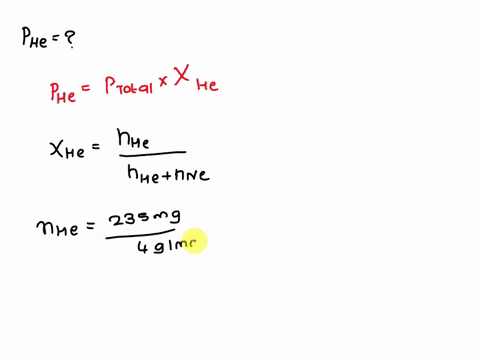 P_He = ?
P_He = P_Total × X_He
X_He = n_He / n_He + n_Ne
n_He = 235 mg / 4 g/mo